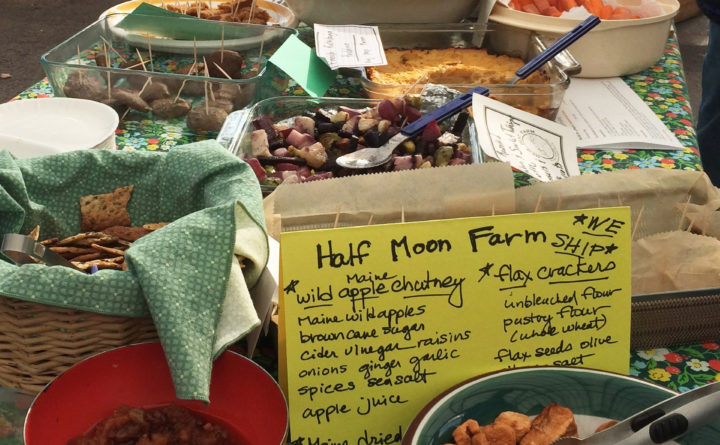 Half Moon Farm
*WE
SHIP*
*wild Maine apple chutney
Maine wild apples
brown cane sugar
cider vinegar raisins
onions ginger garlic
spices sea salt
apple juice
*Maine dried
*flax crackers
unbleached flour
pastry flour
(whole wheat)
flax seeds olive
salt